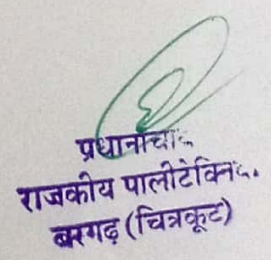 प्रधानाचा
राजकीय पालीटेक्नि
बरगढ़ (चित्रकूट)